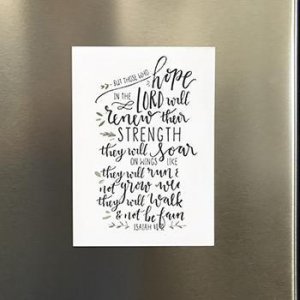 BUT THOSE WHO
hope
IN THE
LORD will
renew their
STRENGTH
they will soar
ON WINGS LIKE
they will run &
not grow wea
they will walk
& not be fain
ISAIAH 40: